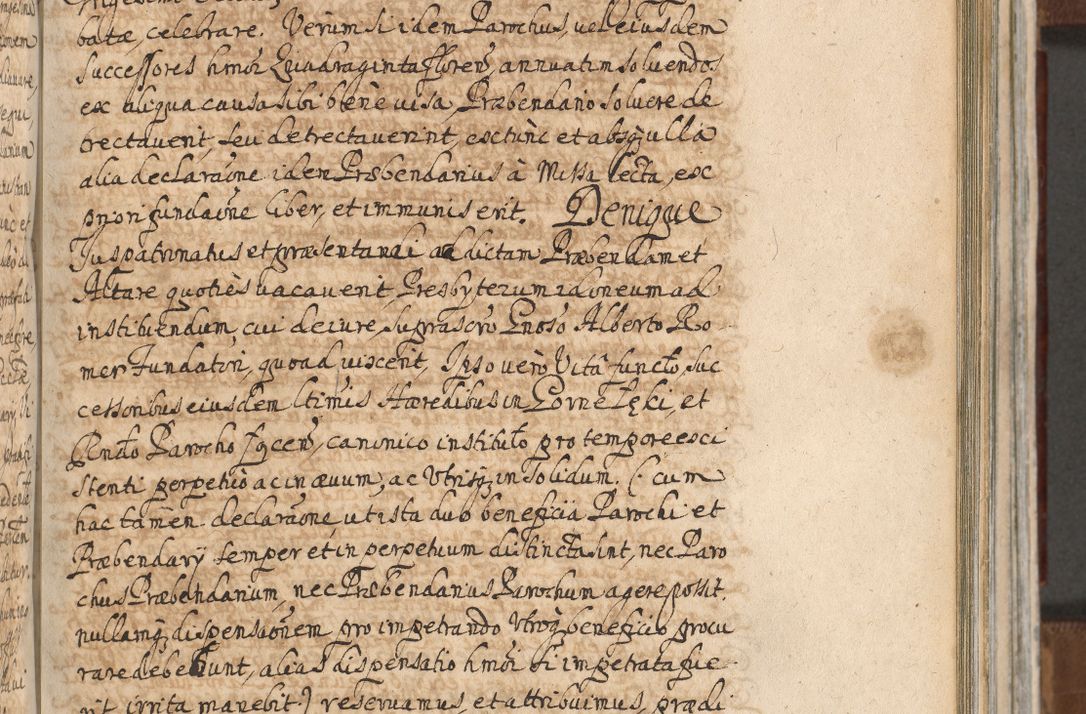 batæ, celebrare. Verùm si idem Parochus, vel eiusdem
successores hmoi Quadraginta floren, annuatim soluendos
ex aliqua causa sibi bene visa, Præbendario soluere de
trectaverit, seu detrectaverint, extunc et absq ulla
alia declaraone idem Præbendarius à Missa lecta, ex
priori fundaone liber, et immunis erit. Denique
Jus patronatus et præsentandi ad dictam Præbendam et
Altare quotiès vacaverit, Presbyterum idoneum ad
instituendum, cui de iure, suprascro Gnoso Alberto Ro
mer Fundatori, quoad vixerit, Ipso verò Vitâ functo, suc
cessoribus eiusdem ltimis Hæredibus in
Rndo Parocho canonico instituto pro tempore exci
stenti perpetuò ac in ævum, ac Utrisq, in solidum. (: cum
hac tamen declaraone ut ista duo beneficia Parochi et
Præbendarÿ semper et in perpetuum distincta sint, nec Paro
chus Præbendarium, nec Præbendarius Parochum agere possit.
nullamq, dispensaonem pro impetrando Utroq, beneficio procu
rare debebunt, alias dispensatio hmoi si impetrata fue
rit irrita manebit:) reservamus, et attribuimus, prædi